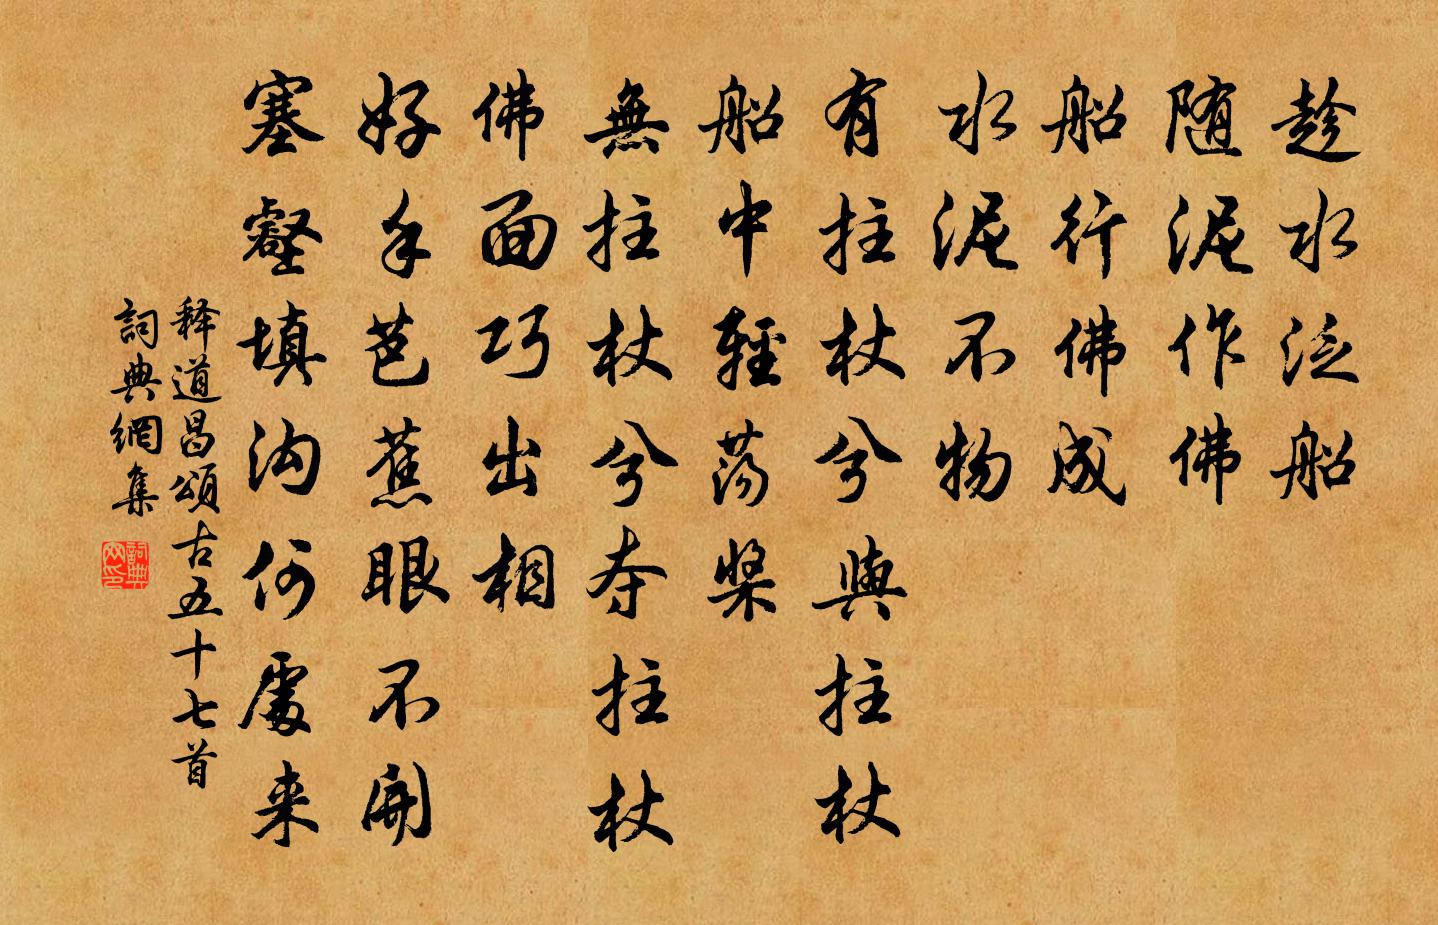 趁水泛船
随泥作佛
船行佛成
水泥不物
有拄杖兮與拄杖
船中輕蕩槳
無拄杖兮夺拄杖
佛面巧出相
好手芭蕉眼不開
塞壑填沟何處来
释道昌頌古五十七首
詞典網集
詞典
网印